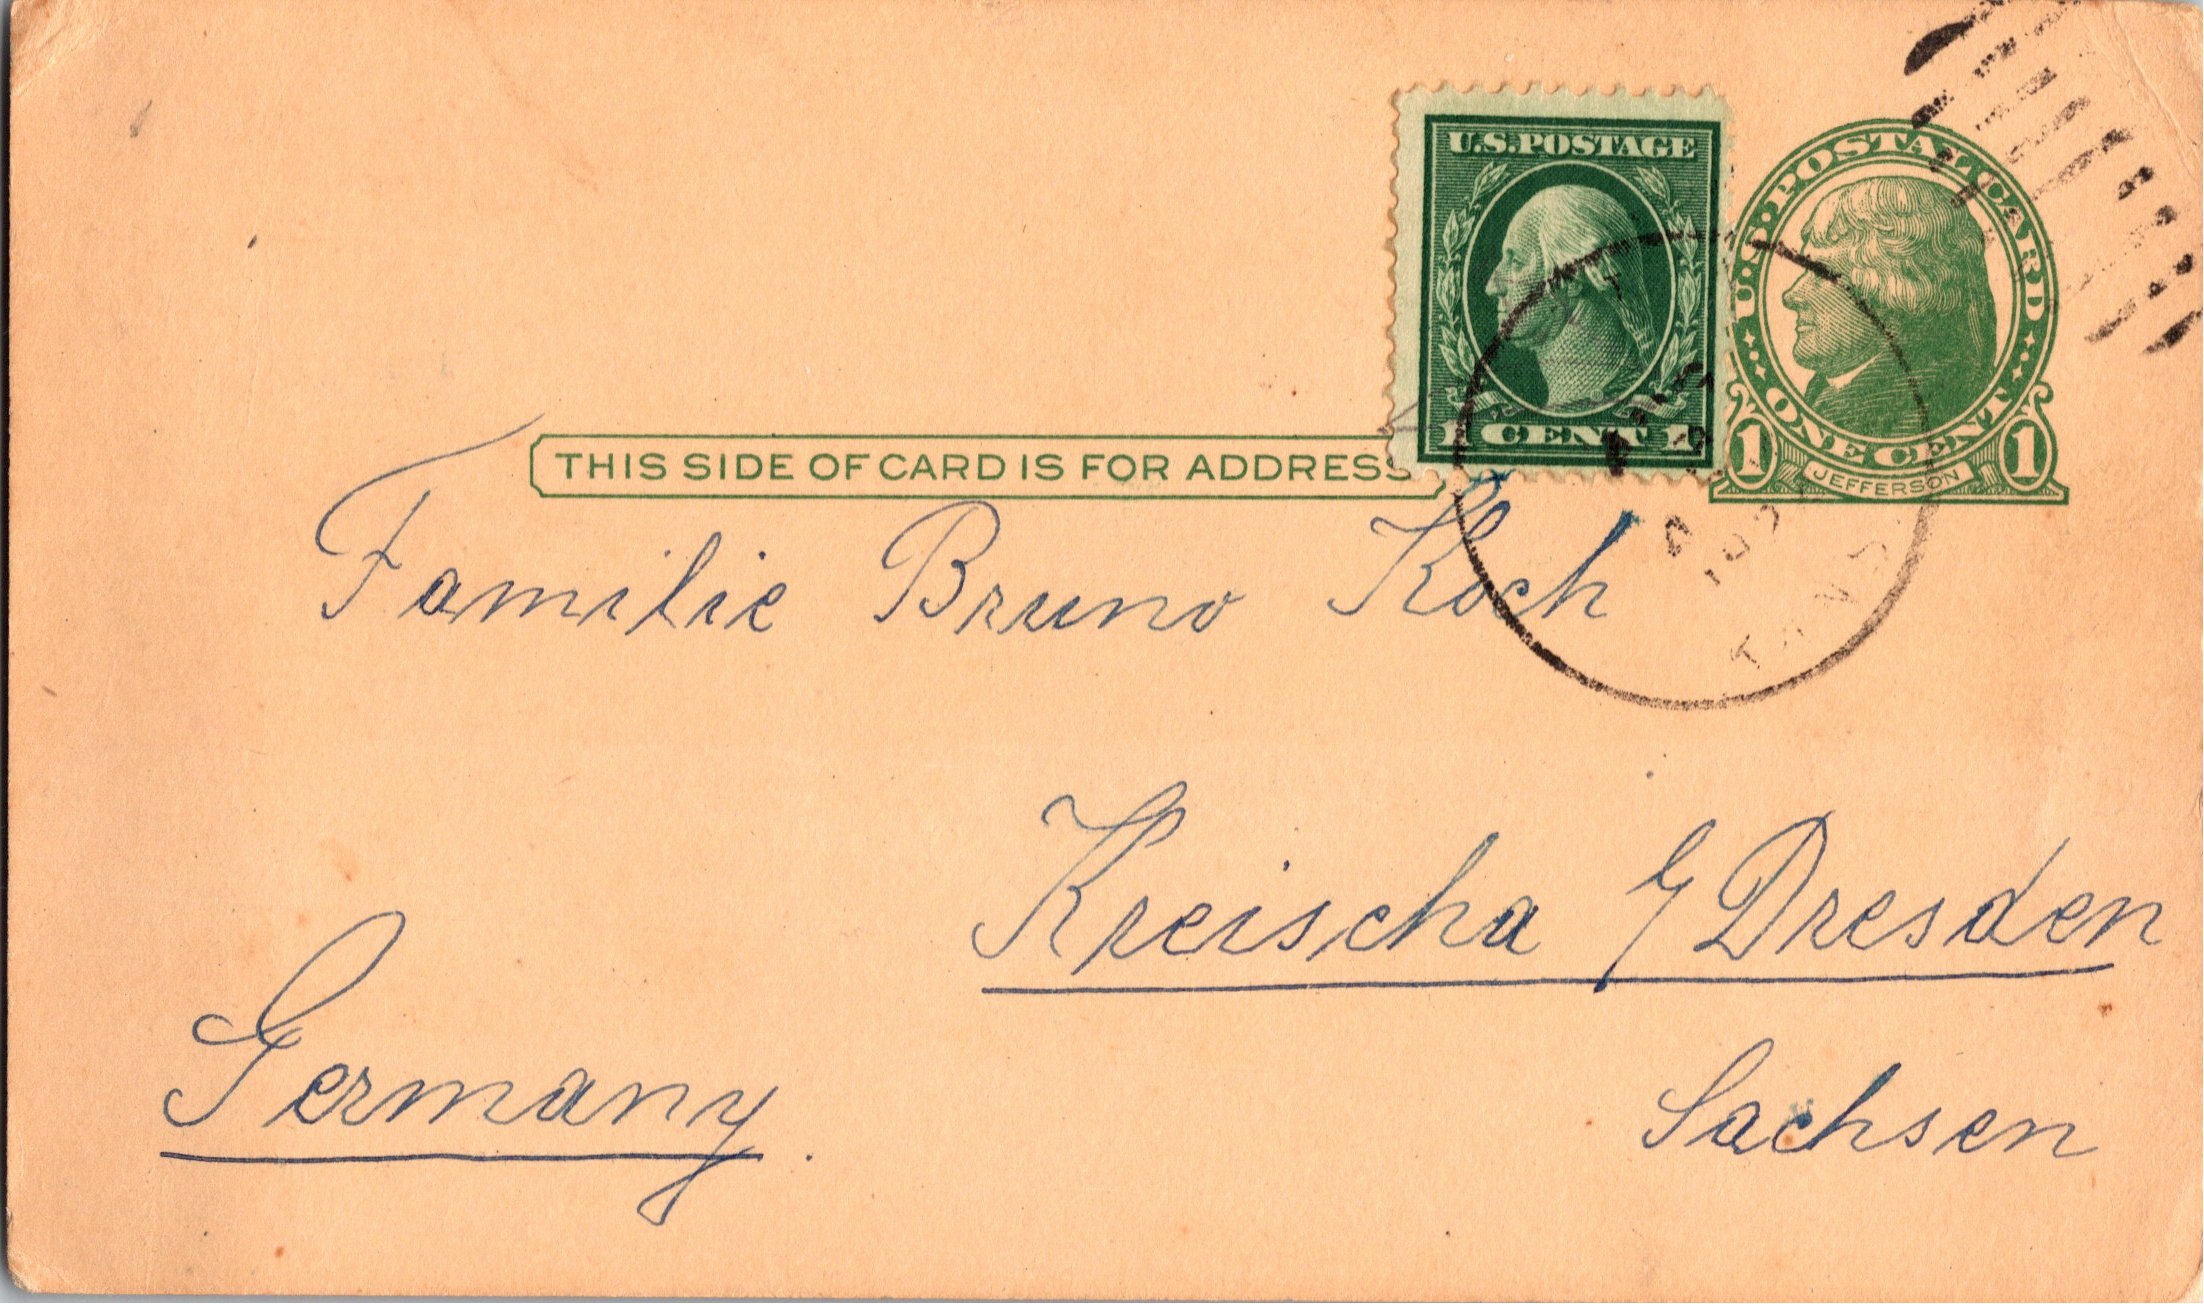 U.S. POSTAGE
1 CENT 1
U.S. POSTAL CARD
ONE CENT
1 JEFFERSON 1
THIS SIDE OF CARD IS FOR ADDRESS
Familie Bruno Koch
Kreischa b/Dresden
Sachsen
Germany.